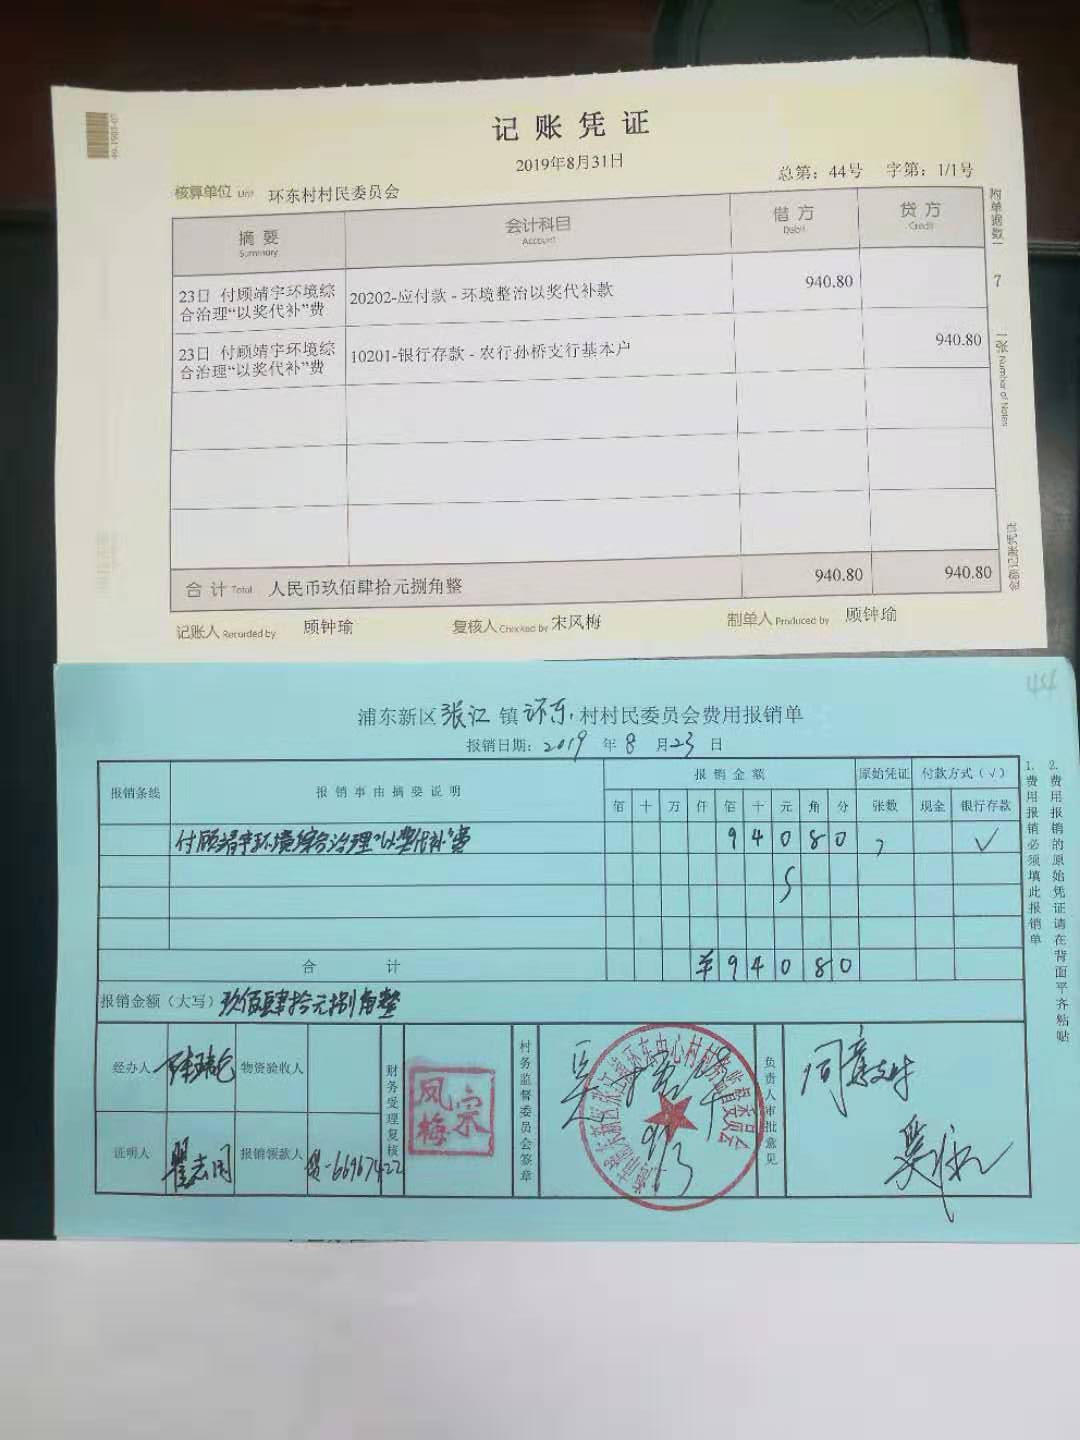 记账凭证
2019年8月31日
总第：44号 字第：1/1号
核算单位 Unit 环东村村民委员会
摘要 会计科目 借方 贷方
Summary Account Debit Credit
23日 付顾靖宇环境综合治理“以奖代补”费 20202-应付款 - 环境整治以奖代补款 940.80
23日 付顾靖宇环境综合治理“以奖代补”费 10201-银行存款 - 农行孙桥支行基本户 940.80
合计 Total 人民币玖佰肆拾元捌角整 940.80 940.80
记账人 Recorded by 顾钟瑜 复核人 Checked by 宋风梅 制单人 Produced by 顾钟瑜
附单据数 7 张 Number of Notes
浦东新区张江镇环东村村民委员会费用报销单
报销日期：2019年8月23日
报销条线 报销事由摘要说明 报销金额 原始凭证 付款方式（√）
佰 十 万 仟 佰 十 元 角 分 张数 现金 银行存款
付顾靖宇环境综合治理“以奖代补”费 9 4 0 8 0 7 √
合计 ¥ 9 4 0 8 0
报销金额（大写）玖佰肆拾元捌角整
经办人 物资验收人 财务受理复核 村务监督委员会签章 负责人审批意见
同意支付
证明人 报销领款人
9/3
1. 费用报销必须填此报销单
2. 费用报销的原始凭证请在背面平齐粘贴